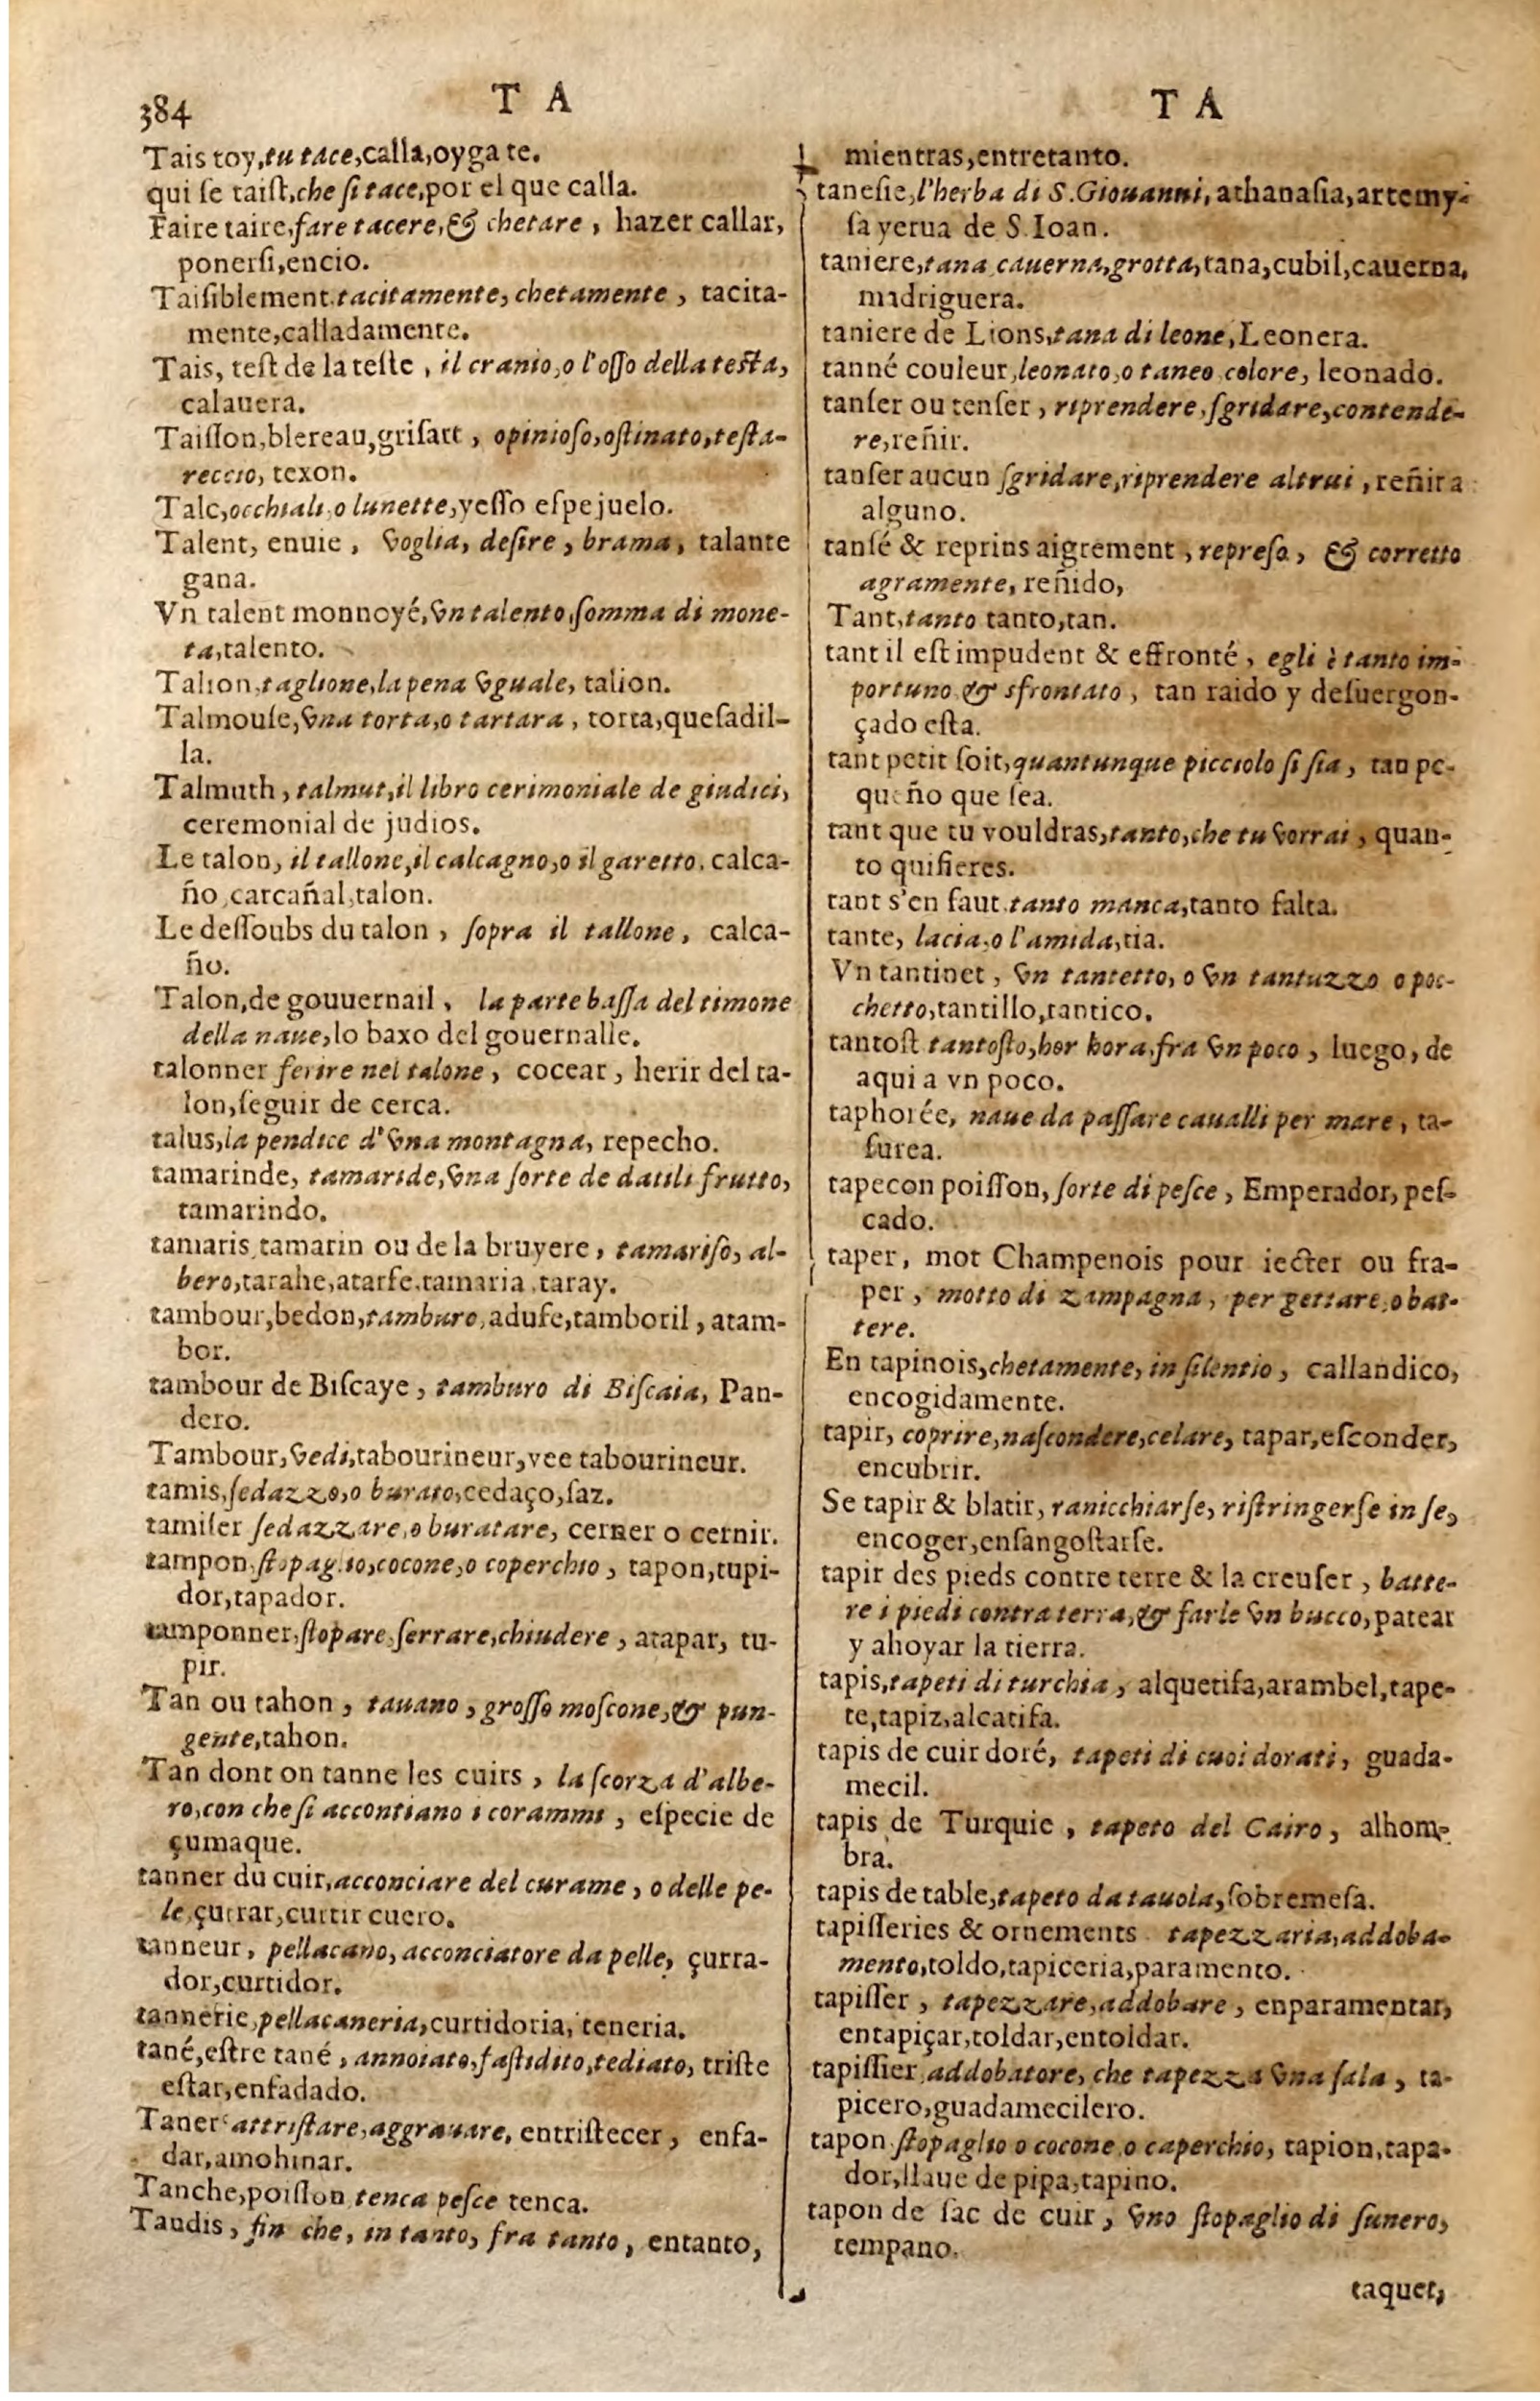 384
T A
Tais toy, tu tace, calla, oyga te.
qui se taiſt, che ſi tace, por el que calla.
Faire taire, fare tacere, & chetare, hazer callar,
ponerſi, encio.
Taiſiblement. tacitamente, chetamente, tacita-
mente, calladamente.
Tais, teſt de la teſte, il cranio, o l'oſſo della teſta,
calauera.
Taiſſon, blereau, griſart, opinioſo, oſtinato, teſta-
reccio, texon.
Talc, occhiali, o lunette, yeſſo eſpejuelo.
Talent, enuie, voglia, deſire, brama, talante
gana.
Vn talent monnoyé, vn talento, ſomma di mone-
ta, talento.
Talion, taglione, la pena vguale, talion.
Talmouſe, vna torta, o tartara, torta, queſadil-
la.
Talmuth, talmut, il libro cerimoniale de giudici,
ceremonial de judios.
Le talon, il tallone, il calcagno, o il garetto, calca-
ño, carcañal, talon.
Le deſſoubs du talon, ſopra il tallone, calca-
ño.
Talon, de gouuernail, la parte baſſa del timone
della naue, lo baxo del gouernalle.
talonner ferire nel talone, cocear, herir del ta-
lon, ſeguir de cerca.
talus, la pendice d'vna montagna, repecho.
tamarinde, tamaride, vna ſorte de datili frutto,
tamarindo.
tamaris, tamarin ou de la bruyere, tamariſo, al-
bero, tarahe, atarfe. tamaria, taray.
tambour, bedon, tamburo, adufe, tamboril, atam-
bor.
tambour de Biſcaye, tamburo di Biſcaia, Pan-
dero.
Tambour, vedi, tabourineur, vee tabourineur.
tamis, ſedazzo, o burato, cedaço, ſaz.
tamiſer ſedazzare, o buratare, cerner o cernir.
tampon, ſtopaglio, cocone, o coperchio, tapon, tupi-
dor, tapador.
tamponner, ſtopare, ſerrare, chiudere, atapar, tu-
pir.
Tan ou tahon, tauano, groſſo moſcone, & pun-
gente, tahon.
Tan dont on tanne les cuirs, la ſcorza d'albe-
ro, con che ſi accontiano i corammi, eſpecie de
çumaque.
tanner du cuir, acconciare del curame, o delle pe-
le, çurrar, curtir cuero.
tanneur, pellacano, acconciatore da pelle, çurra-
dor, curtidor.
tannerie, pellacaneria, curtidoria, teneria.
tané, eſtre tané, annoiato, faſtidito, tediato, triſte
eſtar, enfadado.
Taner attriſtare, aggrauare, entriſtecer, enfa-
dar, amohinar.
Tanche, poiſſon tenca peſce tenca.
Tandis, fin che, in tanto, fra tanto, entanto,
T A
mientras, entretanto.
taneſie, l'herba di S. Giouanni, athanaſia, artemy-
ſa yerua de S. Ioan.
taniere, tana, cauerna, grotta, tana, cubil, cauerna,
madriguera.
taniere de Lions, tana di leone, Leonera.
tanné couleur, leonato, o taneo colore, leonado.
tanſer ou tenſer, riprendere, ſgridare, contende-
re, reñir.
tanſer aucun ſgridare, riprendere altrui, reñir a
alguno.
tanſé & reprins aigrement, repreſo, & corretto
agramente, reñido,
Tant, tanto tanto, tan.
tant il eſt impudent & effronté, egli è tanto im-
portuno & sfrontato, tan raido y deſuergon-
çado eſta.
tant petit ſoit, quantunque picciolo ſi ſia, tan pe-
queño que ſea.
tant que tu vouldras, tanto, che tu vorrai, quan-
to quiſieres.
tant s'en faut, tanto manca, tanto falta.
tante, la cia, o l'amida, tia.
Vn tantinet, vn tantetto, o vn tantuzzo o poc-
chetto, tantillo, tantico.
tantoſt tantoſto, hor hora, fra vn poco, luego, de
aqui a vn poco.
taphorée, naue da paſſare caualli per mare, ta-
furea.
tapecon poiſſon, ſorte di peſce, Emperador, peſ-
cado.
taper, mot Champenois pour iecter ou fra-
per, motto di zampagna, per gettare, o bat-
tere.
En tapinois, chetamente, in ſilentio, callandico,
encogidamente.
tapir, coprire, naſcondere, celare, tapar, eſconder,
encubrir.
Se tapir & blatir, ranicchiarſe, riſtringerſe in ſe,
encoger, enſangoſtarſe.
tapir des pieds contre terre & la creuſer, batte-
re i piedi contra terra, & farle vn bucco, patear
y ahoyar la tierra.
tapis, tapeti di turchia, alquetifa, arambel, tape-
te, tapiz, alcatifa.
tapis de cuir doré, tapeti di cuoi dorati, guada-
mecil.
tapis de Turquie, tapeto del Cairo, alhom-
bra.
tapis de table, tapeto da tauola, ſobremeſa.
tapiſſeries & ornements tapezzaria, addoba-
mento, toldo, tapiceria, paramento.
tapiſſer, tapezzare, addobare, enparamentar,
entapiçar, toldar, entoldar.
tapiſſier, addobatore, che tapezza vna ſala, ta-
picero, guadamecilero.
tapon, ſtopaglio o cocone o caperchio, tapion, tapa-
dor, llaue de pipa, tapino.
tapon de ſac de cuir, vno ſtopaglio di ſunero,
tempano.
taquet,